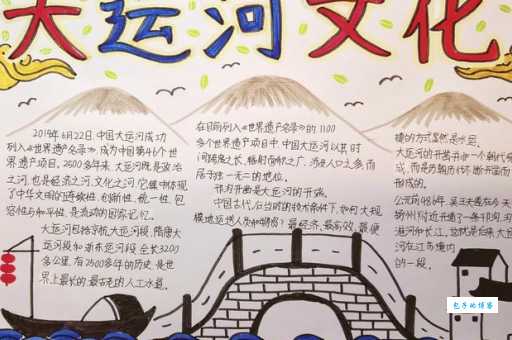 大运河文化
2014年6月22日,中国大运河成功
列入《世界遗产名录》,成为中国第46个世
界遗产项目。2500多年来,大运河既是政治
之河,也是经济之河、文化之河,它集中体现
了中华文明的连续性、创新性、统一性、包
容性与和平性,是流动的国家记忆。
大运河包括京杭大运河段、隋唐大
运河段和浙东运河段,全长3200
多公里,有2500多年的历史,是世
界上最长的、最古老的人工水道。
在目前列入《世界遗产名录》的1100
多个世界遗产项目中,中国大运河以其时
间跨度之长、辐射面积之广、涉及人口之多,而
居于独一无二的地位。
邗沟开凿是大运河的开端。
中国古代,在当时的技术条件下,如何大规
模地运送人员和物资?最经济、最高效、最便
捷的方式显然是水运。
大运河的开凿并非一个朝代
而是历朝历代不断开凿而
形成的。
公元前486年,吴王夫差在今天
扬州附近开通了一条
淮河和长江,这就是后来大运
河在江苏境内
的一段。
包子的博客